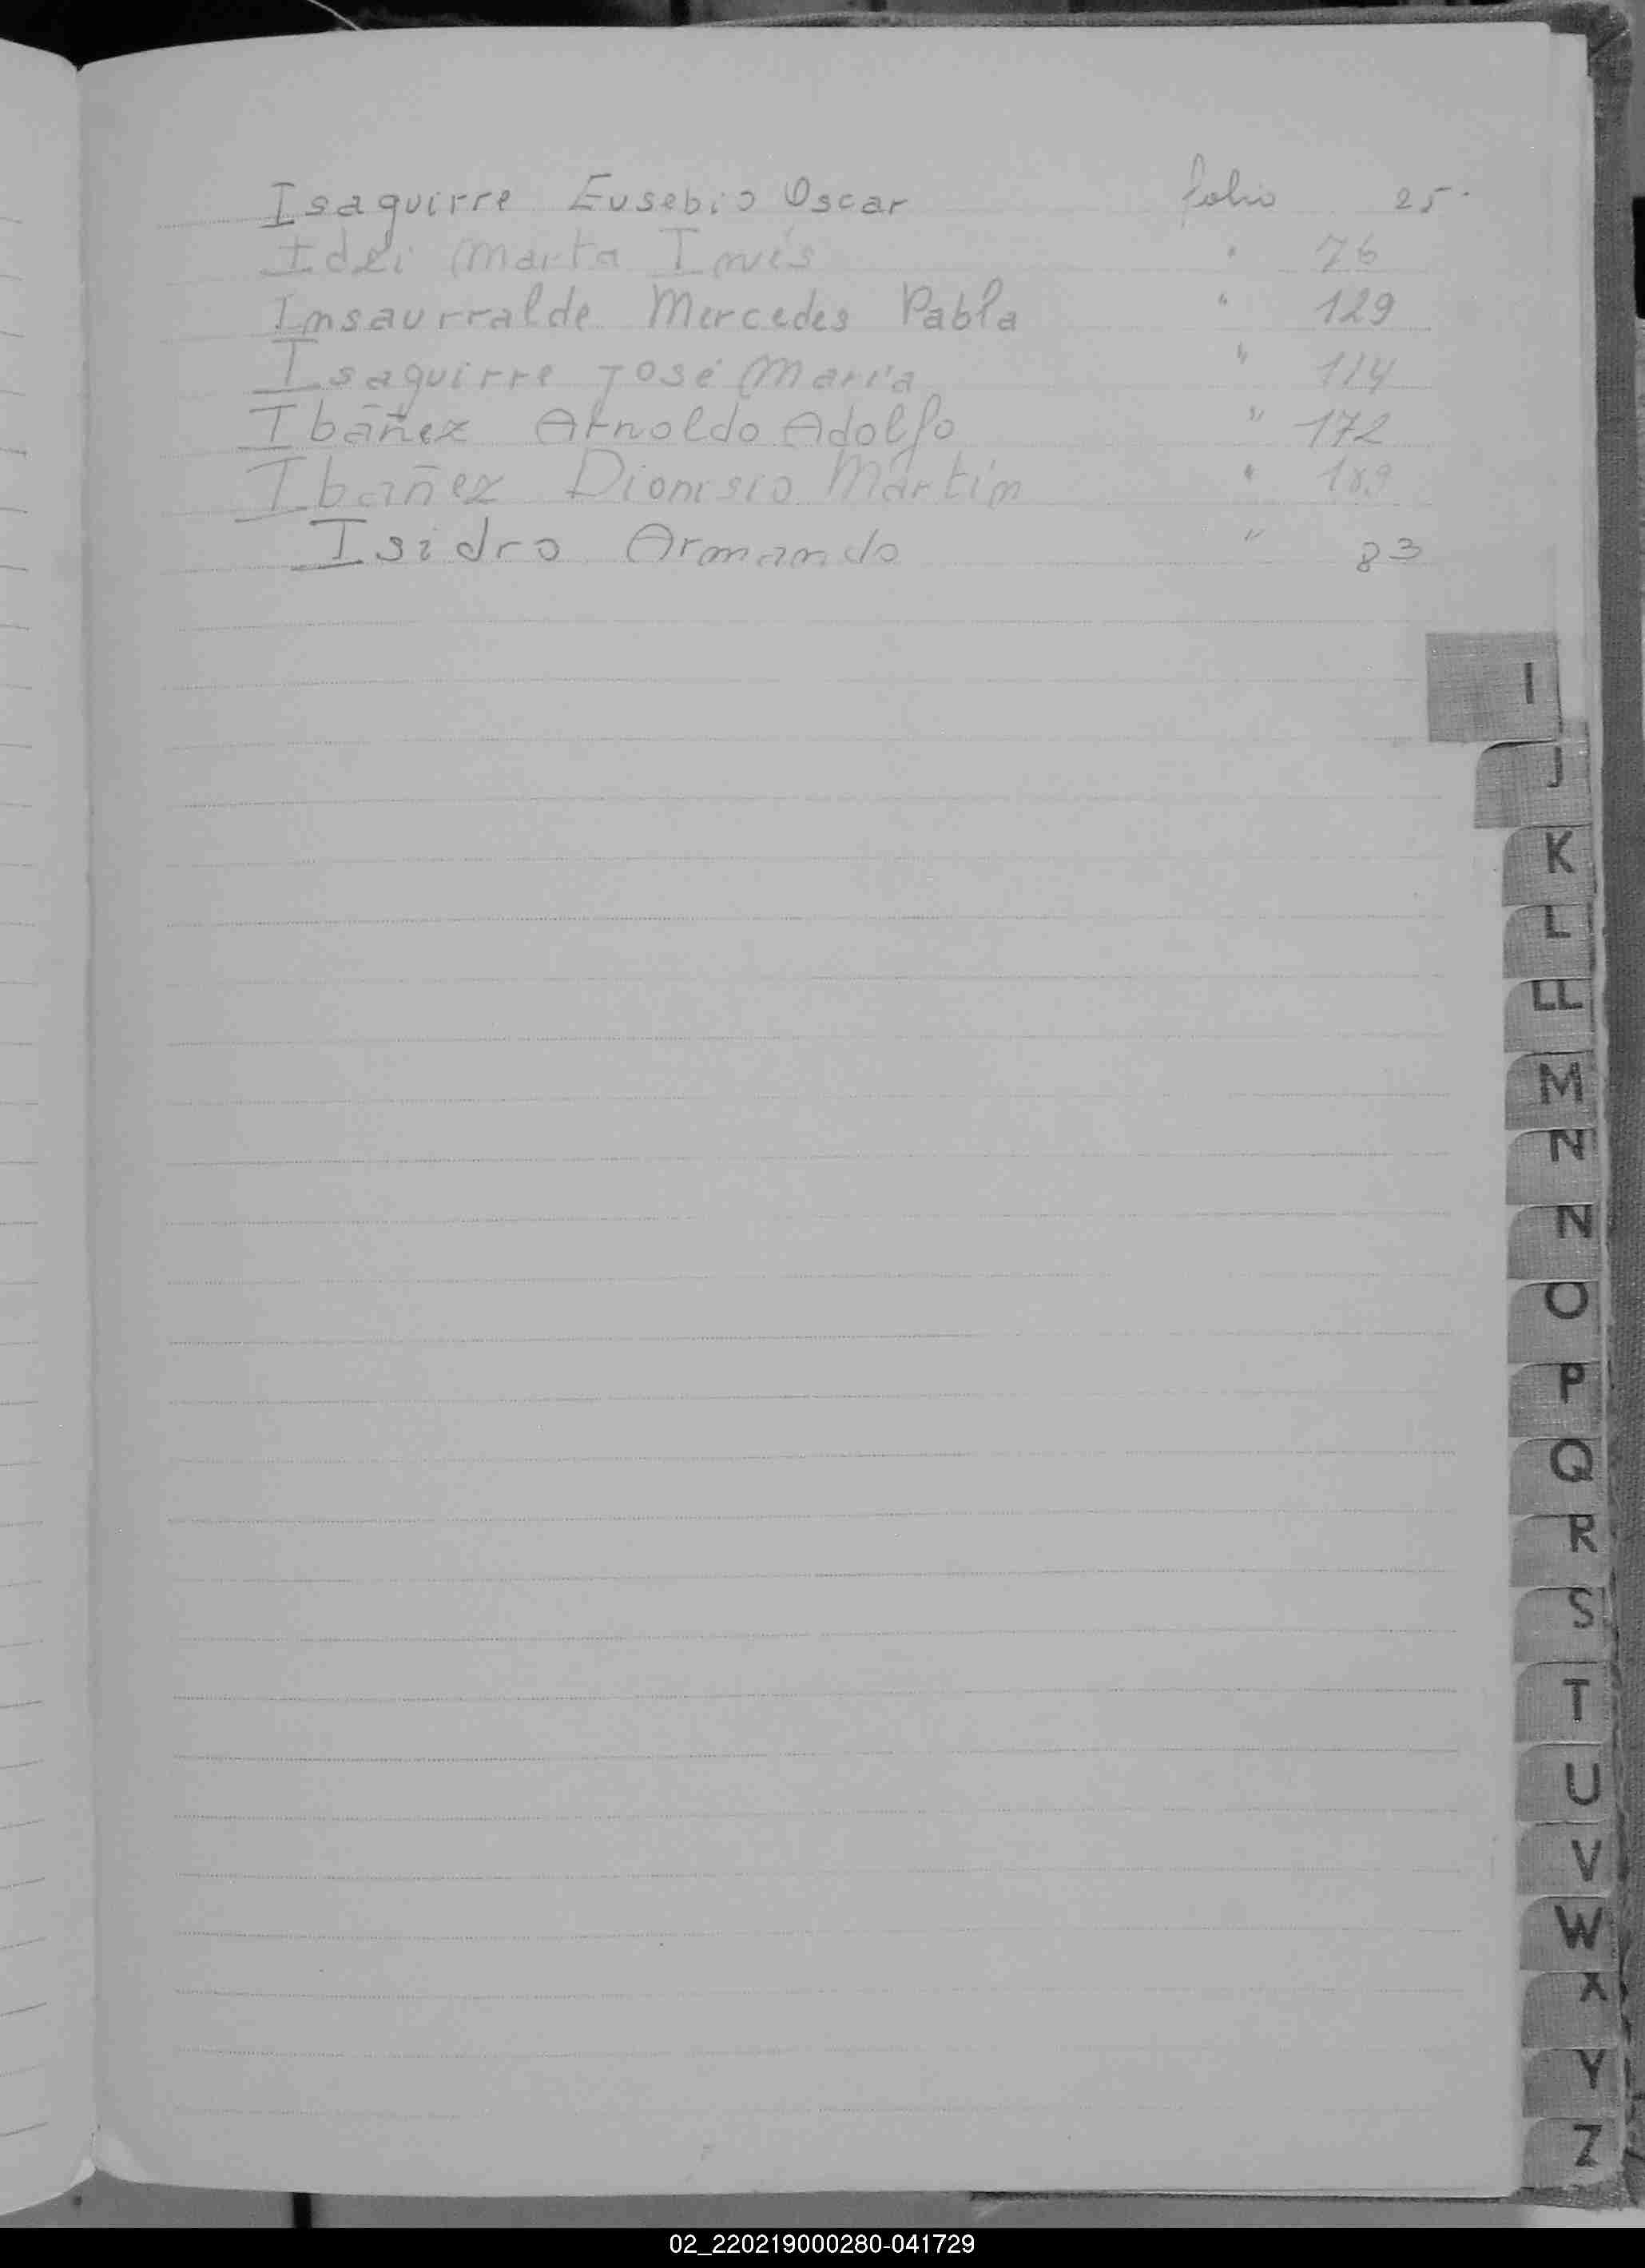 Isaguirre Eusebio Oscar folio 25.
Idei Marta Inés " 76
Insaurralde Mercedes Pabla " 129
Isaguirre José María " 114
Ibáñez Arnoldo Adolfo " 172
Ibáñez Dionisio Martín " 189
Isidro Armando " 83
I
J
K
L
LL
M
N
Ñ
O
P
Q
R
S
T
U
V
W
X
Y
Z
02_220219000280-041729